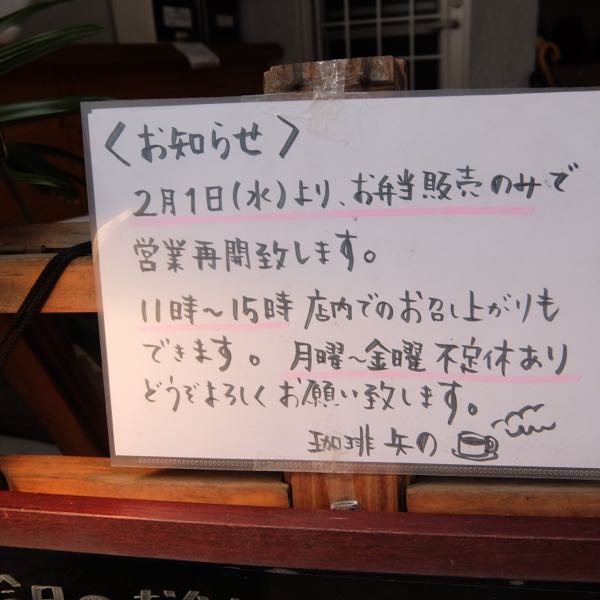 〈お知らせ〉
2月1日(水)より、お弁当販売のみで
営業再開致します。
11時～15時 店内でのお召し上がりも
できます。 月曜～金曜 不定休あり
どうぞよろしくお願い致します。
珈琲 矢の